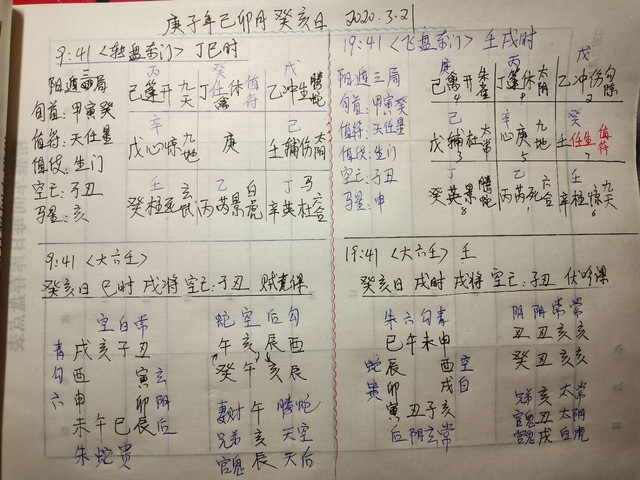 庚子年己卯月癸亥日 2020.3.21
9:41 <转盘奇门> 丁巳时
阳遁三局
旬首:甲寅癸
值符:天任星
值使:生门
空亡:子丑
马星:亥
丙 癸 戊
己蓬开九天 丁任休值符 乙冲生腾蛇
禽
辛 己
戊心惊九地 庚 壬辅伤太阴
壬 乙 丁马
癸柱死玄武 丙芮景白虎 辛英杜六合
19:41 <飞盘奇门> 壬戌时
阳遁三局
旬首:甲寅癸
值符:天任星
值使:生门
空亡:子丑
马星:申
庚 丙 戊
己禽开朱雀 丁蓬休太阴 乙冲伤勾陈
4 9 2
己 辛 癸
戊辅杜太常 庚心 九地 壬任生值符
3 5 7
壬 乙 丁
癸英景腾蛇 丙芮死六合 辛柱惊九天
8 1 6
9:41 <大六壬>
癸亥日 巳时 戌将 空亡:子丑
空白常
青 戌亥子丑
勾 酉 寅 玄
六 申 卯 阴
未午巳辰 后
朱蛇贵
蛇空后勾
午亥辰酉
癸午亥辰
妻财 午 腾蛇
兄弟 亥 天空
官鬼 辰 天后
19:41 <大六壬> 壬
癸亥日 戌时 戌将 空亡:子丑 伏吟课
朱六勾青
巳午未申
蛇 辰 酉 空
贵 卯 戌 白
寅 丑子亥
后 阴玄常
阴阴常常
丑丑亥亥
癸丑亥亥
兄弟 亥 太常
官鬼 丑 太阴
官鬼 戌 白虎